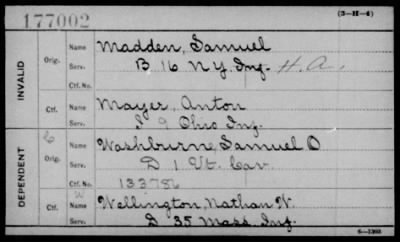 177002
(3-H-4)
INVALID
Orig.
Name
Madden, Samuel
Serv.
B, 16 N Y. Inf. H. A.
Ctf. No.
Ctf.
Name
Mayer, Anton
Serv.
I 9 Ohio Inf.
DEPENDENT
Orig.
Name
Washburne, Samuel O
Serv.
D 1 Vt. Cav.
Ctf. No.
133786
Ctf.
Name
Wellington, Nathan W.
Serv.
D 35 Mass. Inf.
6-1393